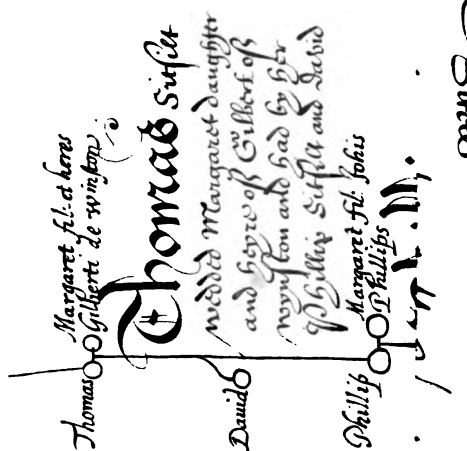 Margaret fil: et heres
Gilberti de Winston
Thomas
Thomas Sitsilt
wedded Margaret daughter
and heyre off Gilbert off
Wynston and had by her
Phillip Sitsilt and David
David
Margaret fil: Johis
Phillips
Phillip